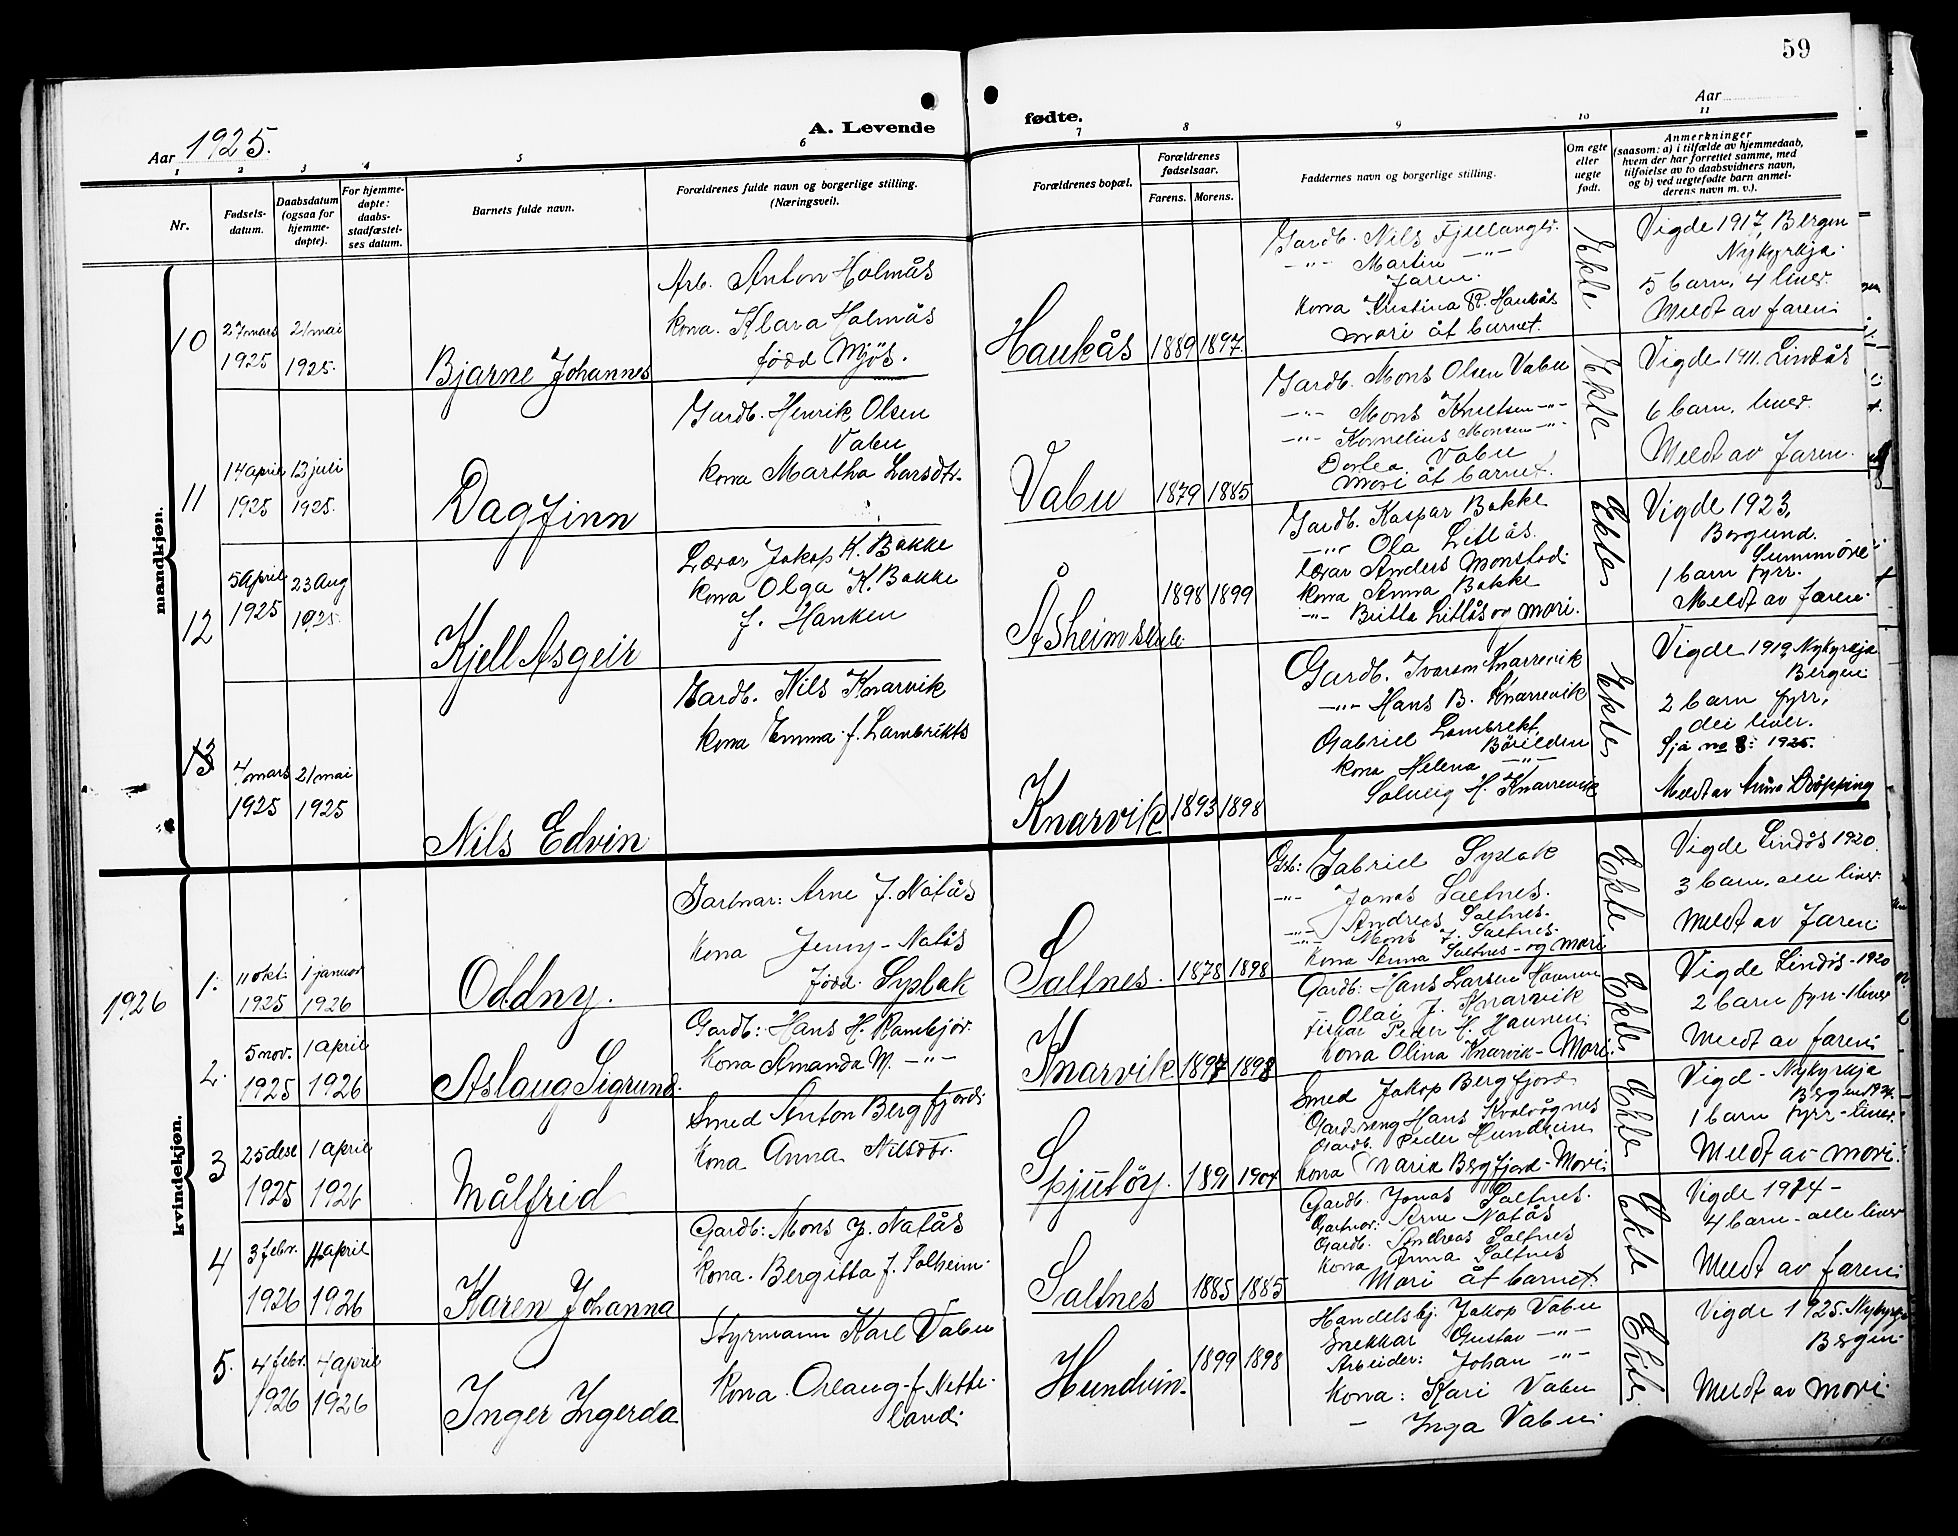 59
Aar 1925.
A. Levende
fødte.
Aar
1 2 3 4 5 6 7 8 9 10 11
Nr.
Fødsels-
datum.
Daabsdatum
(ogsaa for
hjemme-
døpte).
For hjemme-
døpte:
daabs-
stadfæstel-
ses datum.
Barnets fulde navn.
Forældrenes fulde navn og borgerlige stilling.
(Næringsvei).
Forældrenes bopæl.
Forældrenes
fødselsaar.
Farens. Morens.
Faddernes navn og borgerlige stilling.
Om egte
eller
uegte
født.
Anmerkninger
(saasom: a) i tilfælde av hjemmedaab,
hvem der har forrettet samme, med
tilføielse av to daabsvidners navn,
og b) ved uegtefødte barn anmel-
derens navn m. v.).
mandkjøn.
10
27 mars
1925
21 mai
1925.
Bjarne Johannes
Arb. Anton Holmås
kona. Klara Holmås
fødd Mjøs.
Haukås
1889 1897.
Gardb. Nils Fjellanger.
-"- Martin -"-
Faren.
Kona Kristina R. Haukås
mori åt barnet.
Ekte
Vigde 1917, Bergen
Nykyrkja.
5 barn, 4 liver.
Meldt av faren
11
14 april
1925
13 juli
1925.
Dagfinn
Gardb. Henrik Olsen
Vabu
kona Martha Larsdtr.
Vabu
1879 1885
Gardb. Mons Olsen Vabu
-"- Mons Knutsen -"-
-"- Kornelius Monsen -"-
Dortea Vabu
Mori åt barnet.
Ekte
Vigde 1911. Lindås
6 barn, liver.
Meldt av Faren.
12
5 April
1925
23 Aug
1925.
Kjell Asgeir
Lærar Jakop K. Bakke
kona Olga K. Bakke
f. Hanken
Åsheim skule
1898 1899
Gardb. Kaspar Bakke
-"- Ola Litlås.
lærar Anders Monstad
kona Anna Bakke
-"- Britta Litlås og mori.
Ekte
Vigde 1923,
Borgund.
Sunnmøre
1 barn fyrr.
Meldt av faren.
13
4 mars
1925
21 mai
1925
Nils Edvin
Gardb. Nils Knarvik
kona Emma f. Lambrikts
Knarvik
1893 1898
Gardb. Ivarson Knarrevik
-"- Hans B. Knarrevik
Gabriel Lambrekt.
Børilden
kona Helena -"-
Solveig H. Knarrevik
Ekte
Vigde 1919 Nykyrkja
Bergen
2 barn fyrr,
dei liver.
Sjå no 8: 1925.
Meldt av Anna Døpping
kvindekjøn.
1926
1.
11 okt.
1925
1 januar
1926
Oddny.
Gartnar: Arne J. Natås
Kona Jenny - Natås
fødd. Syslak
Saltnes.
1878 1898
Gb: Gabriel Syslak
-"- Jonas Saltnes.
Andreas Saltnes.
-"- Mons J. Saltnes.
Kona Anna Saltnes - og mori
Ekte
Vigde Lindås 1920.
3 barn, alle liver
Meldt av Faren
2.
5 nov.
1925
1 april
1926
Aslaug Sigrund.
Gardb: Hans H. Rambjør.
Kona Amanda M. -"-
Knarvik
1897 1898
Gardb: Hans Larsen Haunen
Olai J. Knarvik
Fiskar Peder H. Haunen
kona Olina Knarvik - Mori.
Ekte
Vigde Lindås - 1920
2 barn fyrr - 1 liver
Meldt av faren
3
25 dese
1925
1 april
1926
Målfrid
Smed Anton Bergfjord:
Kona Anna Nilsdtr.
Spjutøy.
1891 1904
Smed Jakop Bergfjord
Gardsdreng Hans Kvalvågnes
Gardb. Peder Hundvin
kona Maria Bergfjord - Mori
Ekte
Vigd - Nykyrkja
Bergen 1924.
1 barn fyrr - liver.
Meldt av mori.
4
3 febr.
1926
4 april
1926
Karen Johanna
Gardb: Mons J. Natås
Kona. Bergitta f. Solheim.
Saltnes
1885 1885
Gardb. Jonas Saltnes.
Gartnar: Arne Natås
Gardb. Andreas Saltnes
Kona Anna Saltnes
Mori åt barnet.
Ekte
Vigde 1914 -
4 barn - alle liver
Meldt av faren
5.
4 febr.
1926
4 april
1926
Inger Ingerda
Styrmann Karl Vabu
Kona. Orlaug - f. Nette-
land:
Hundvin.
1899 1898
Handelsbj. Jakop Vabu
Snekkar Gustav -"-
Arbeider: Johan -"-
Kona: Kari Vabu
- Inga Vabu
Ekte
Vigde 1925. Nykyrkja
Bergen.
Meldt av mori